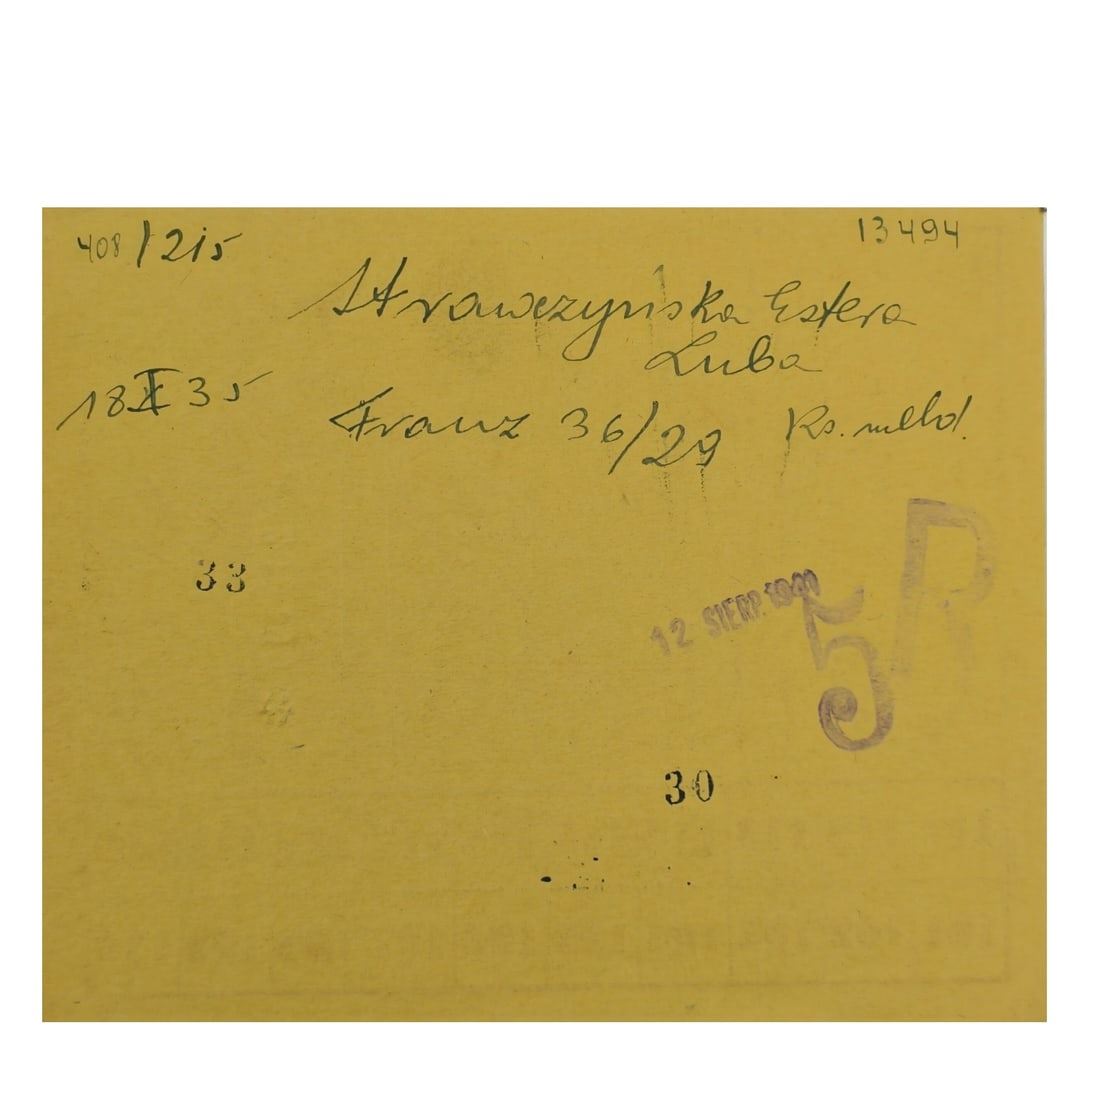 408/215
13494
Strawczyńska Estera
Luba
18 X 35
Franz 36/29 Ks. meld.
33
12 SIERP. 1941
5 R
30